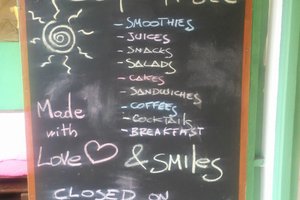 - SMOOTHIES
- JUICES
- SNACKS
- SALADS
- CAKES
- SANDWICHES
- COFFEES
- COCKTAILS
- BREAKFAST
Made
with
Love & SMiles
CLOSED ON